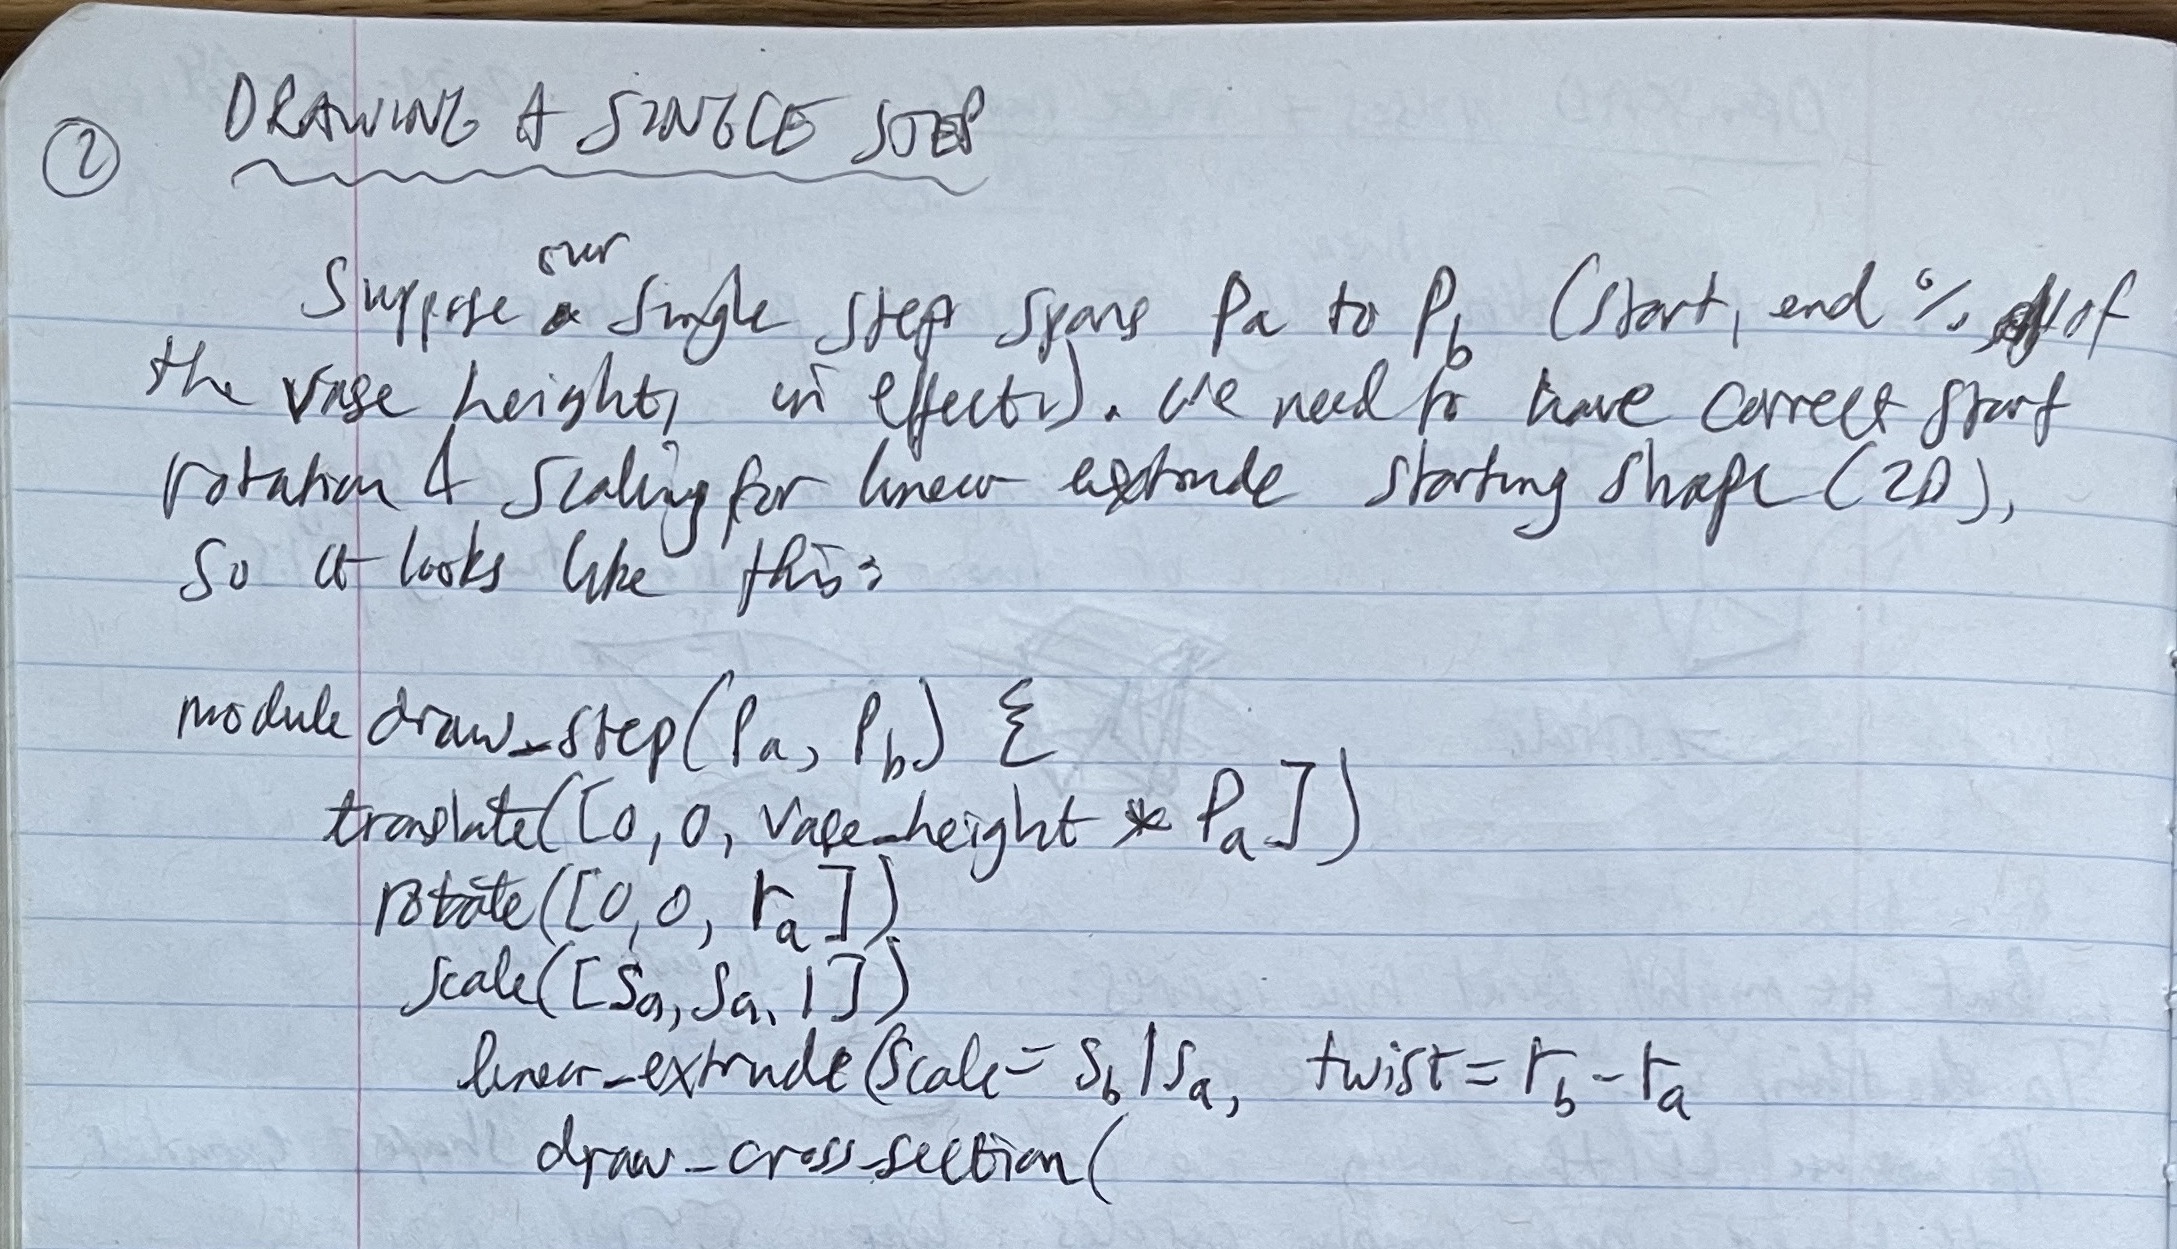 ② DRAWING A SINGLE STEP
Suppose our single step spans Pa to Pb (start, end % of
the vase height, in effect). We need to have correct start
rotation & scaling for linear extrude starting shape (2D),
so it looks like this:
module draw_step(Pa, Pb) {
translate([0, 0, vase_height * Pa])
rotate([0, 0, ra])
scale([Sa, Sa, 1])
linear_extrude(scale = Sb/Sa, twist = rb - ra
draw_cross_section(